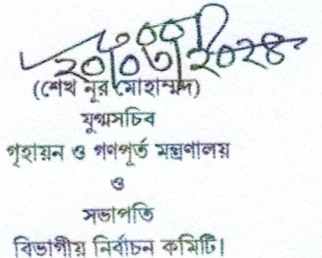 (শেখ নূর মোহাম্মদ)
যুগ্মসচিব
গৃহায়ন ও গণপূর্ত মন্ত্রণালয়
ও
সভাপতি
বিভাগীয় নির্বাচন কমিটি।